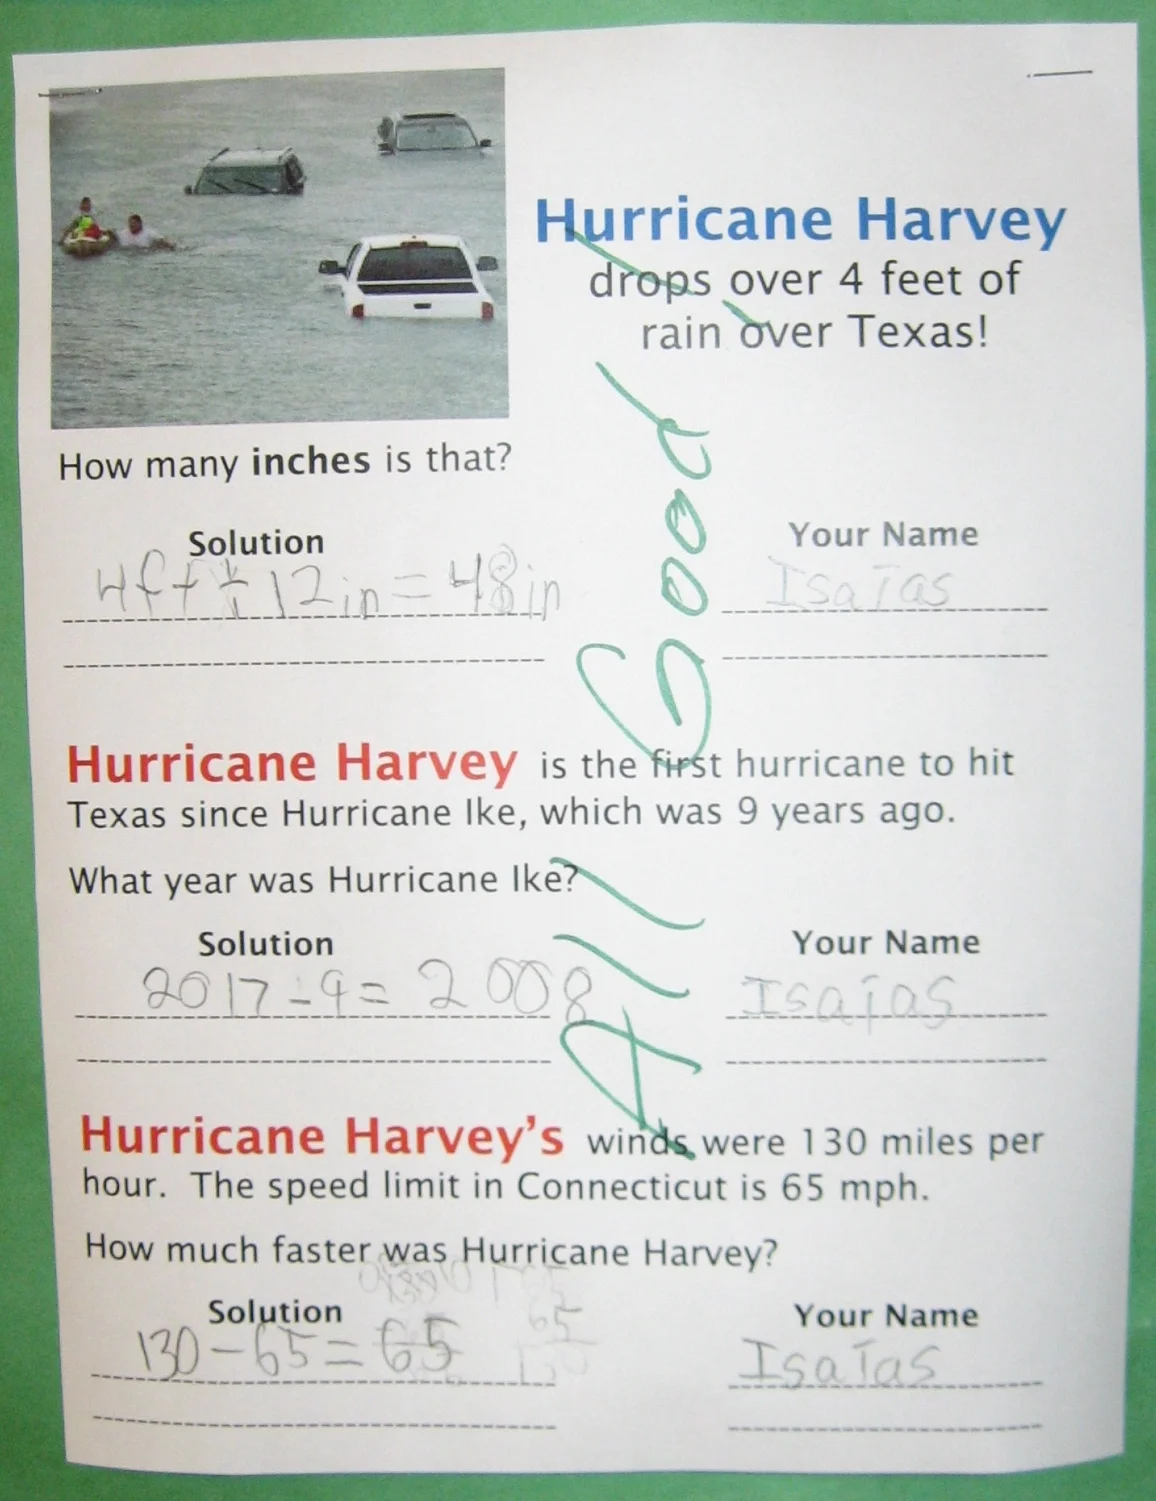 Hurricane Harvey
drops over 4 feet of
rain over Texas!
How many inches is that?
Solution
Your Name
4ft × 12in = 48in
Isaias
All Good
Hurricane Harvey is the first hurricane to hit
Texas since Hurricane Ike, which was 9 years ago.
What year was Hurricane Ike?
Solution
Your Name
2017 - 9 = 2008
Isaias
Hurricane Harvey's winds were 130 miles per
hour. The speed limit in Connecticut is 65 mph.
How much faster was Hurricane Harvey?
Solution
Your Name
65
130 - 65 = 65
Isaias